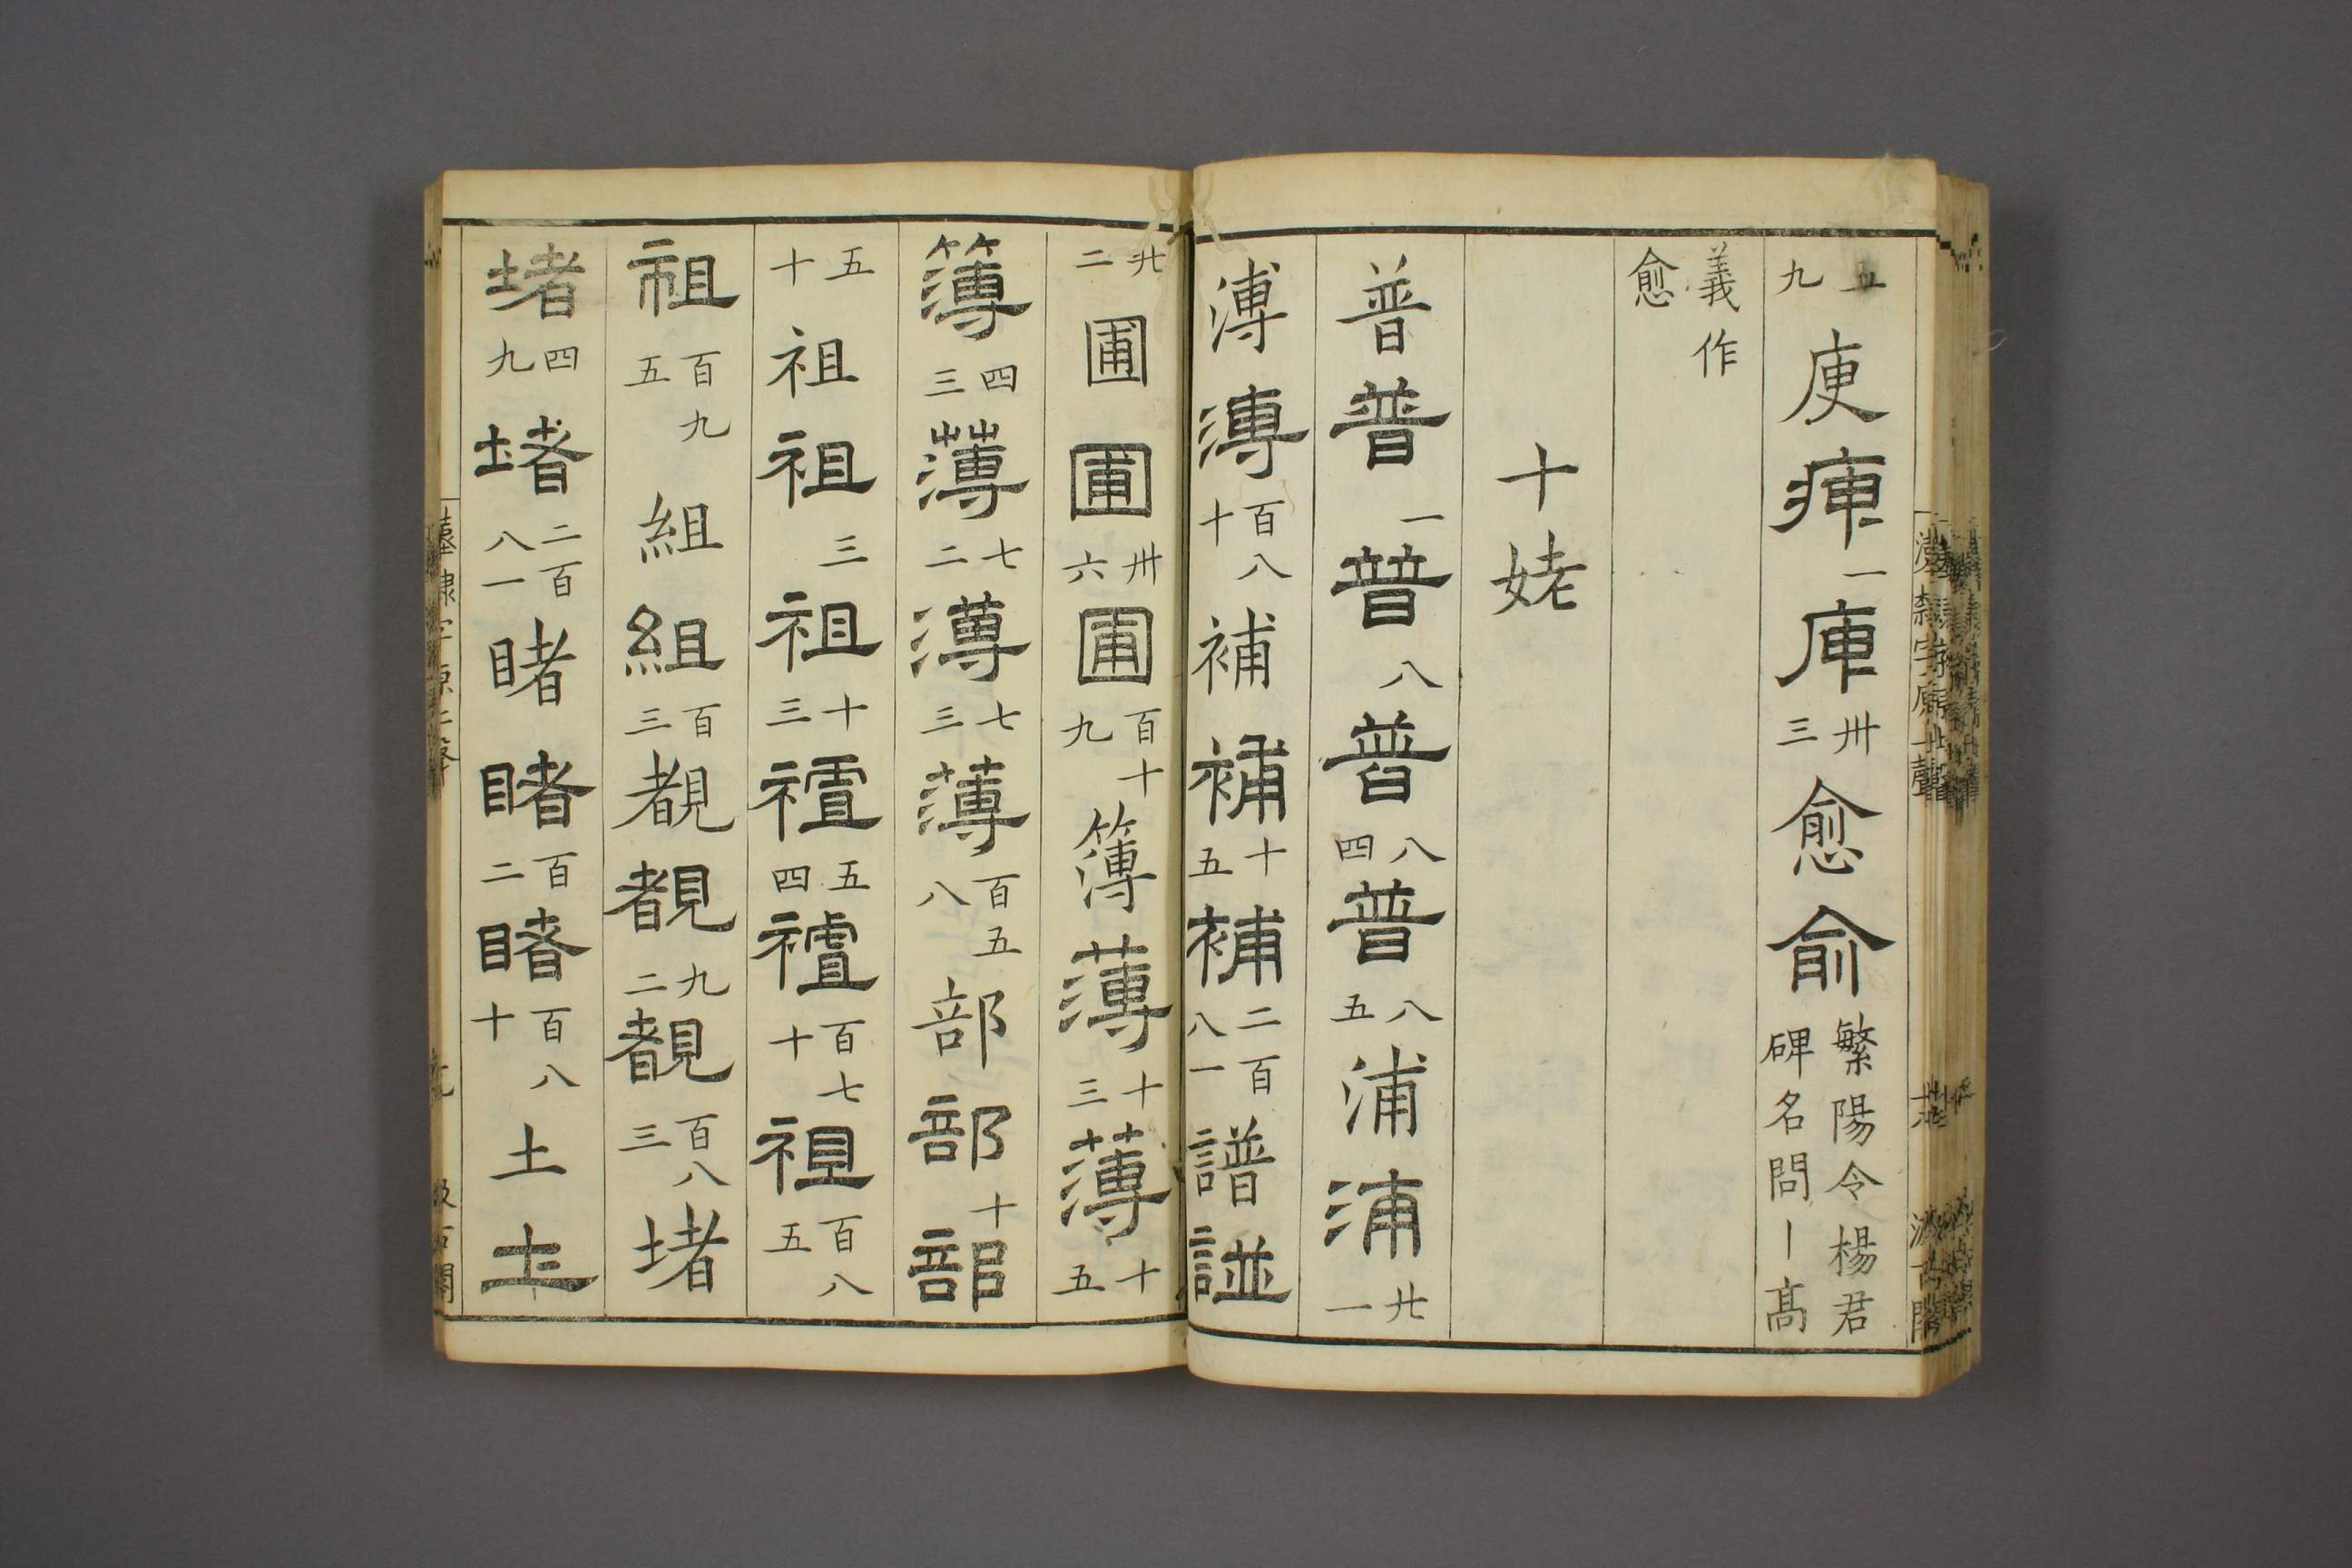 五九庾㢏一庫卅三愈俞繁陽令楊君碑名問丨高
義作愈
十姥
普普一普八普八四普八五浦浦廿一
溥溥百八十補補十五補二百一八譜譜
廿二圃圃卅六圃百十九簿薄十三薄十五
簿四三薄七二薄七三薄百五八部部十部
五十祖祖三祖十三禮五四禮百七十祖百八五
祖百九五組組百三覩覩九二覩百八三堵
堵四九堵二百八一睹睹百二睹百八十土土
漢隸字源上聲
汲古閣